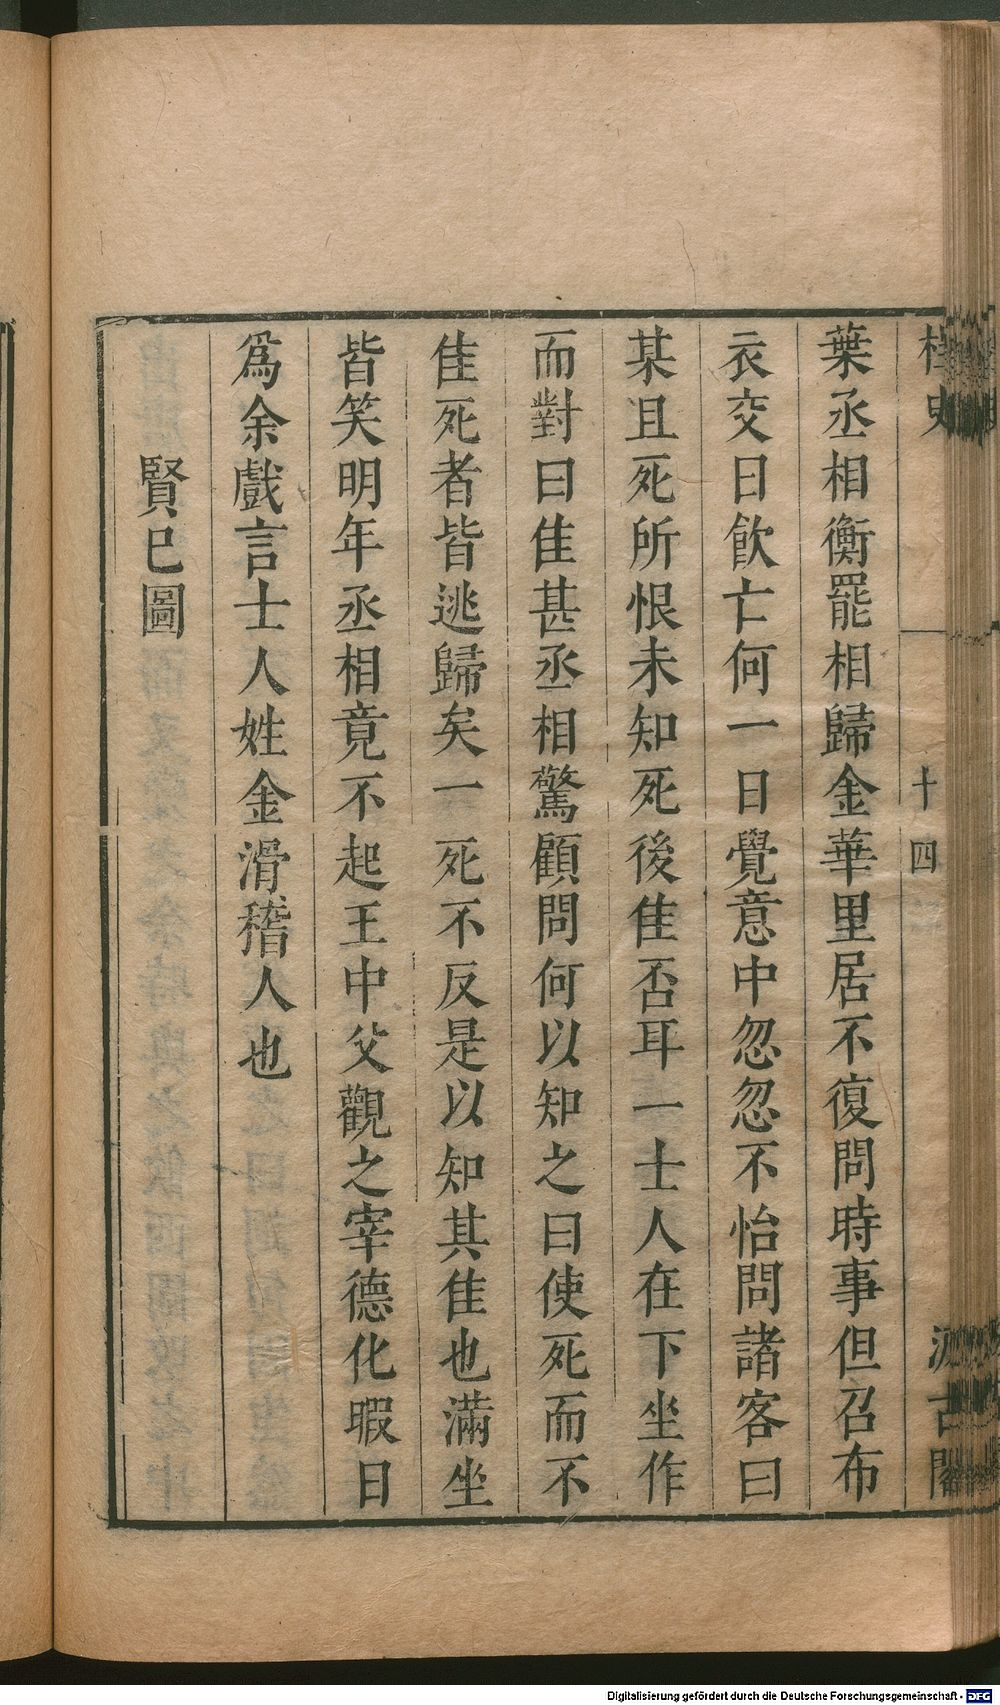 桯史
十四
汲古閣
葉丞相衡罷相歸金華里居不復問時事但召布
衣交日飲亡何一日覺意中忽忽不怡問諸客曰
某且死所恨未知死後佳否耳一士人在下坐作
而對曰佳甚丞相驚顧問何以知之曰使死而不
佳死者皆逃歸矣一死不反是以知其佳也滿坐
皆笑明年丞相竟不起王中父觀之宰德化暇日
爲余戲言士人姓金滑稽人也
賢已圖
Digitalisierung gefördert durch die Deutsche Forschungsgemeinschaft - DFG